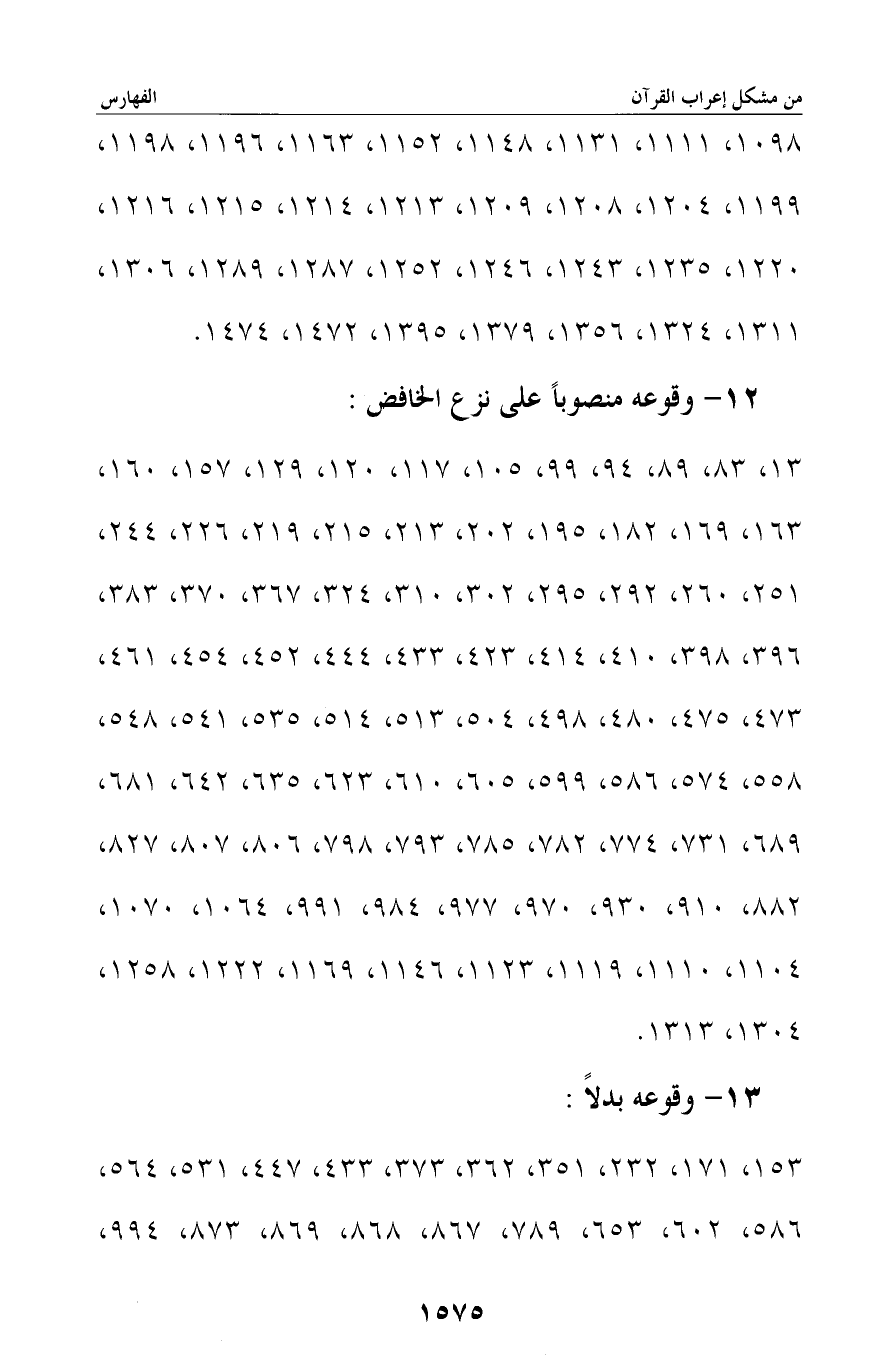 من مشكل إعراب القرآن الفهارس
١٠٩٨، ١١١١، ١١٣١، ١١٤٨، ١١٥٢، ١١٦٣، ١١٩٦، ١١٩٨،
١١٩٩، ١٢٠٤، ١٢٠٨، ١٢٠٩، ١٢١٣، ١٢١٤، ١٢١٥، ١٢١٦،
١٢٢٠، ١٢٣٥، ١٢٤٣، ١٢٤٦، ١٢٥٢، ١٢٨٧، ١٢٨٩، ١٣٠٦،
١٣١١، ١٣٢٤، ١٣٥٦، ١٣٧٩، ١٣٩٥، ١٤٧٢، ١٤٧٤.
١٢- وقوعه منصوباً على نزع الخافض :
١٣، ٨٣، ٨٩، ٩٤، ٩٩، ١٠٥، ١١٧، ١٢٠، ١٢٩، ١٥٧، ١٦٠،
١٦٣، ١٦٩، ١٨٢، ١٩٥، ٢٠٢، ٢١٣، ٢١٥، ٢١٩، ٢٢٦، ٢٤٤،
٢٥١، ٢٦٠، ٢٩٢، ٢٩٥، ٣٠٢، ٣١٠، ٣٢٤، ٣٦٧، ٣٧٠، ٣٨٣،
٣٩٦، ٣٩٨، ٤١٠، ٤١٤، ٤٢٣، ٤٣٣، ٤٤٤، ٤٥٢، ٤٥٤، ٤٦١،
٤٧٣، ٤٧٥، ٤٨٠، ٤٩٨، ٥٠٤، ٥١٣، ٥١٤، ٥٣٥، ٥٤١، ٥٤٨،
٥٥٨، ٥٧٤، ٥٨٦، ٥٩٩، ٦٠٥، ٦١٠، ٦٢٣، ٦٣٥، ٦٤٢، ٦٨١،
٦٨٩، ٧٣١، ٧٧٤، ٧٨٢، ٧٨٥، ٧٩٣، ٧٩٨، ٨٠٦، ٨٠٧، ٨٢٧،
٨٨٢، ٩١٠، ٩٣٠، ٩٧٠، ٩٧٧، ٩٨٤، ٩٩١، ١٠٦٤، ١٠٧٠،
١١٠٤، ١١١٠، ١١١٩، ١١٢٣، ١١٤٦، ١١٦٩، ١٢٢٢، ١٢٥٨،
١٣٠٤، ١٣١٣.
١٣- وقوعه بدلاً :
١٥٣، ١٧١، ٢٣٢، ٣٥١، ٣٦٢، ٣٧٣، ٤٣٣، ٤٤٧، ٥٣١، ٥٦٤،
٥٨٦، ٦٠٢، ٦٥٣، ٧٨٩، ٨٦٧، ٨٦٨، ٨٦٩، ٨٧٣، ٩٩٤،
١٥٧٥